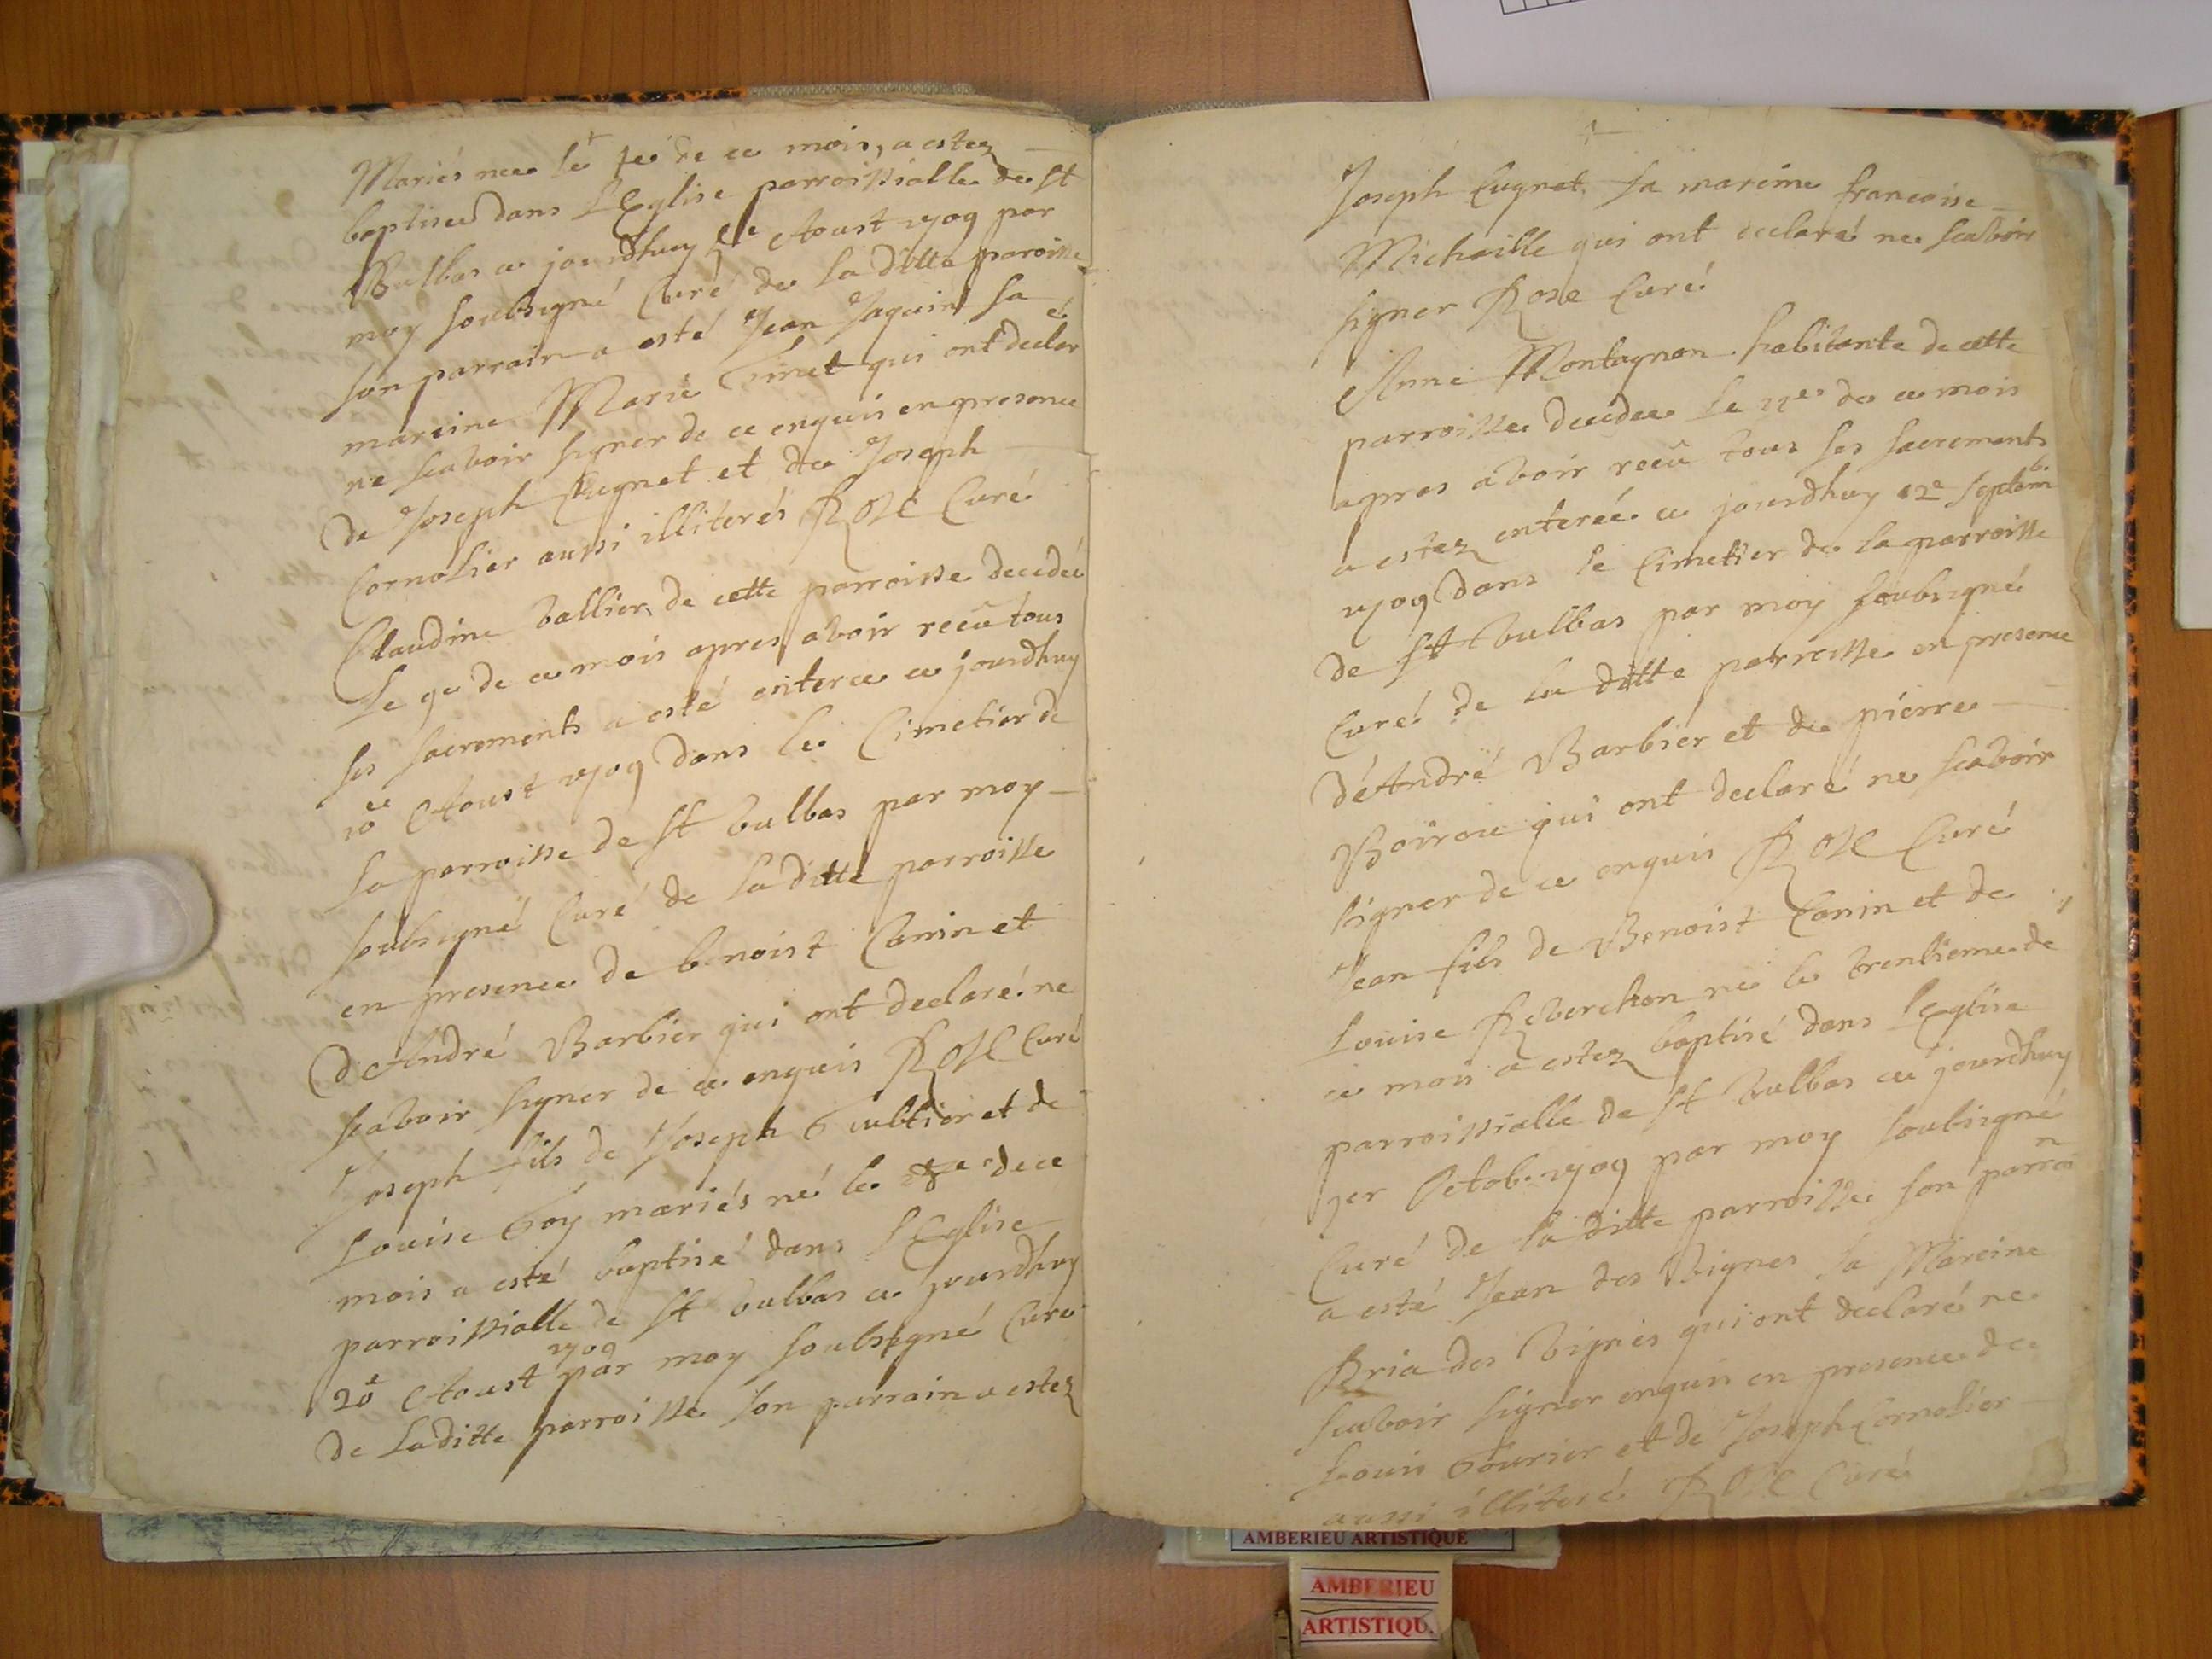 Mariés nee le de ce mois, a estez
baptisee dans l'Eglise parroissialle de st
Vulbas ce jourdhuy Aoust 1709 par
moy soubsigné Curé de la ditte paroisse
son parrain a esté Jean Jaquin sa
mareine Marie Tinet qui ont declaré
ne scavoir signer de ce enquis en presence
de Joseph Cugnet et de Joseph
Cornolier aussi illiterés Rose Curé
Claudine Vallier de cette parroisse decedée
le 9e de ce mois apres avoir reçû tous
ses sacrements a esté enteree ce jourdhuy
10e Aoust 1709 dans le Cimetier de
la parroisse de st Vulbas par moy
soubsigné Curé de la ditte parroisse
en presence de benoist Canin et
d'André Barbier qui ont declaré ne
scavoir signer de ce enquis Rose Curé
Joseph fils de Joseph Gultier et de
Louise Goy mariés né le de ce
mois a esté baptisé dans l'Eglise
parroissialle de st Vulbas ce jourdhuy
20e Aoust 1709 par moy soubsigné Curé
de la ditte parroisse son parrain a estez
Joseph Cugnet sa mareine francoise
Michaille qui ont declaré ne scavoir
signer Rose Curé
Anne Montagnon habitante de cette
parroisse decedee le 11e de ce mois
apres avoir reçû tous ses sacrements
a estez enterée ce jourdhuy 12e septemb.
1709 dans le Cimetier de la parroisse
de st Vulbas par moy soubsigné
Curé de la ditte parroisse en presence
d'André Barbier et de pierre
Boirou qui ont declaré ne scavoir
signer de ce enquis Rose Curé
Jean fils de Benoist Canin et de
Louise Reverchon né le trentieme de
ce mois a estez baptisé dans l'Eglise
parroissialle de st Vulbas ce jourdhuy
1er Octob. 1709 par moy soubsigné
Curé de la ditte parroisse son parrain
a esté Jean des Vignes sa Mareine
Bria des Vignes qui ont declaré ne
scavoir signer enquis en presence de
Louis Fourier et de Joseph Cornolier
aussi illiteré Rose Curé
AMBERIEU ARTISTIQUE
AMBERIEU
ARTISTIQU